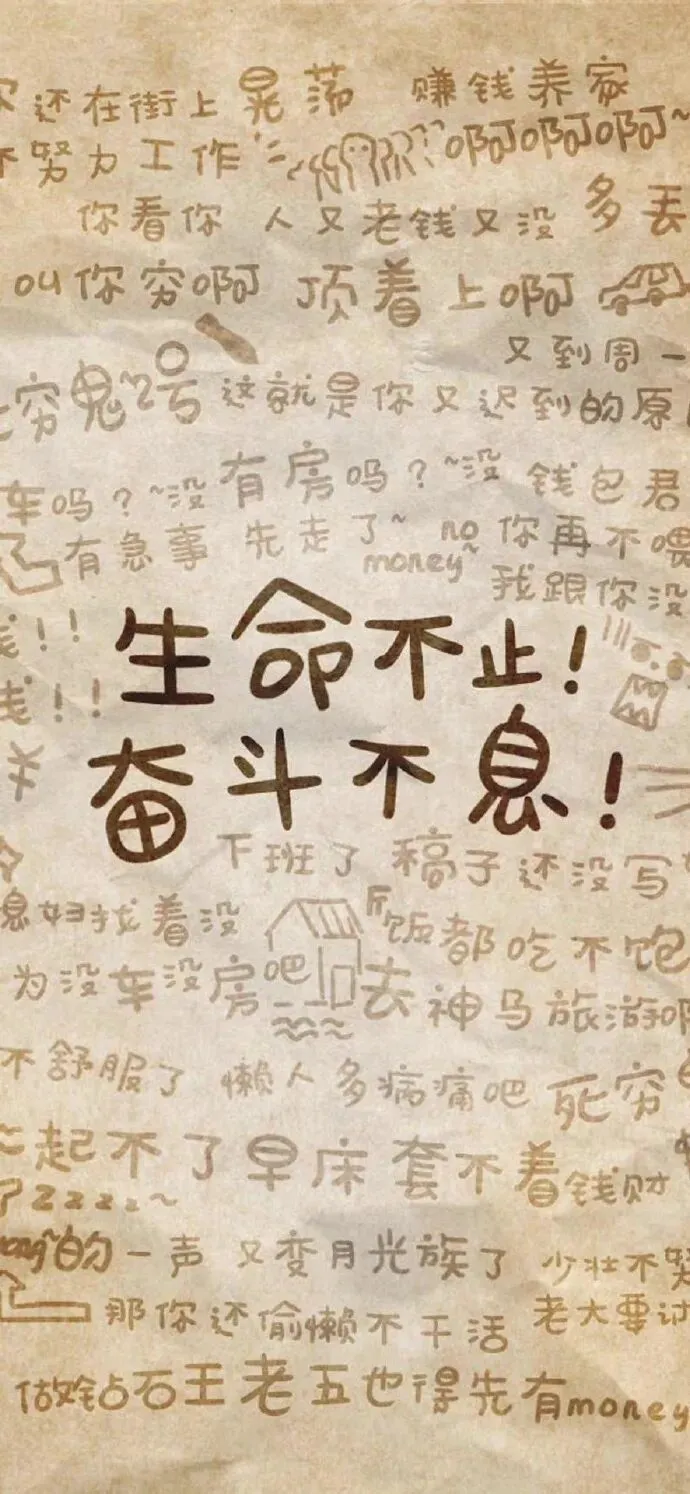 还在街上晃荡 赚钱养家
努力工作 啊啊啊~
你看你 人又老钱又没 多丢
叫你穷啊 顶着上啊
又到周一
穷鬼2号 这就是你又迟到的原
车吗？~没有房吗？~没 钱包君
有急事 先走了~ no money~ 你再不喂
我跟你没
钱！！
钱！！
生命不止！
奋斗不息！
下班了 稿子还没写
媳妇找着没 饭都吃不饱
为没车没房吧 去神马旅游啊
不舒服了 懒人多病痛吧 死穷
起不了早床 套不着钱财
了zzzz~
的一声 又变月光族了 少壮不努
那你还偷懒不干活 老大要讨
做钻石王老五也得先有money